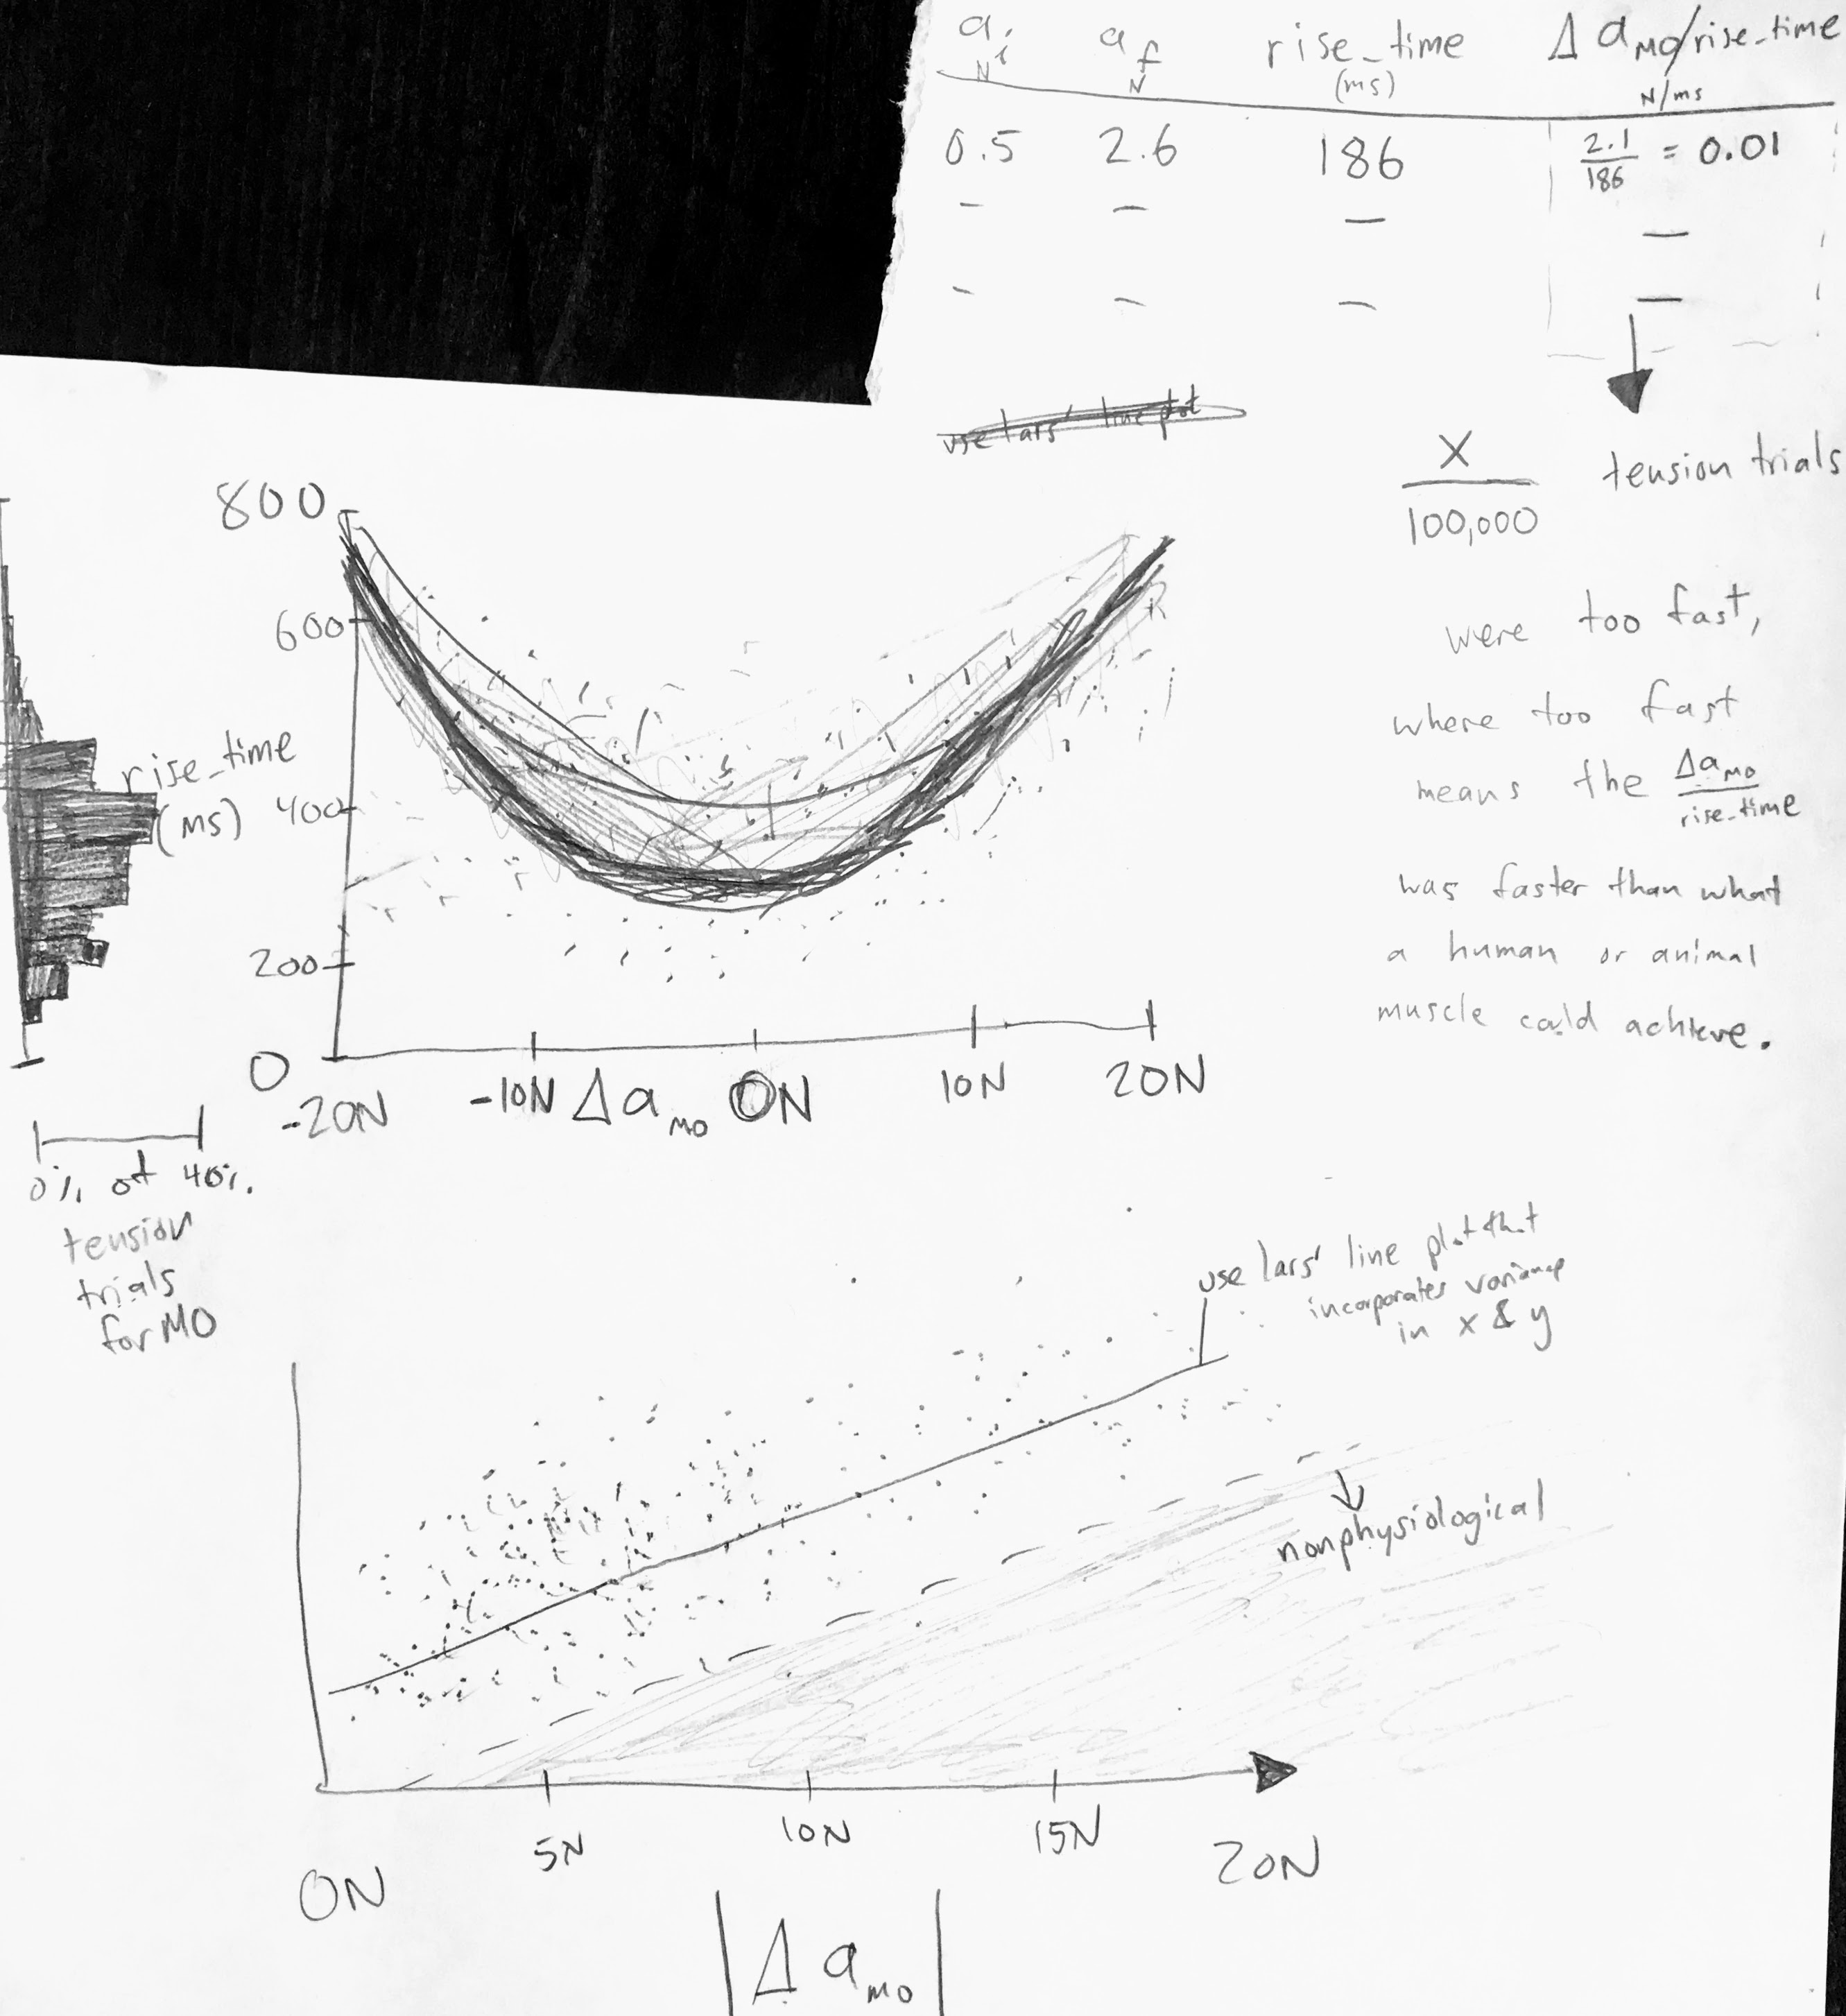 ai af rise_time Δ aMO/rise_time
N N (ms) N/ms
0.5 2.6 186 2.1/186 = 0.01
– – – –
– – – –
use lars' line plot
X/100,000 tension trials
were too fast,
where too fast
means the ΔaMO/rise_time
was faster than what
a human or animal
muscle could achieve.
800
600
rise_time
(ms) 400
200
0
-20N -10N Δ aMO 0N 10N 20N
0% of 40%
tension
trials
for MO
use lars' line plot that
incorporates variance
in x & y
nonphysiological
0N 5N 10N 15N 20N
|Δ aMO|